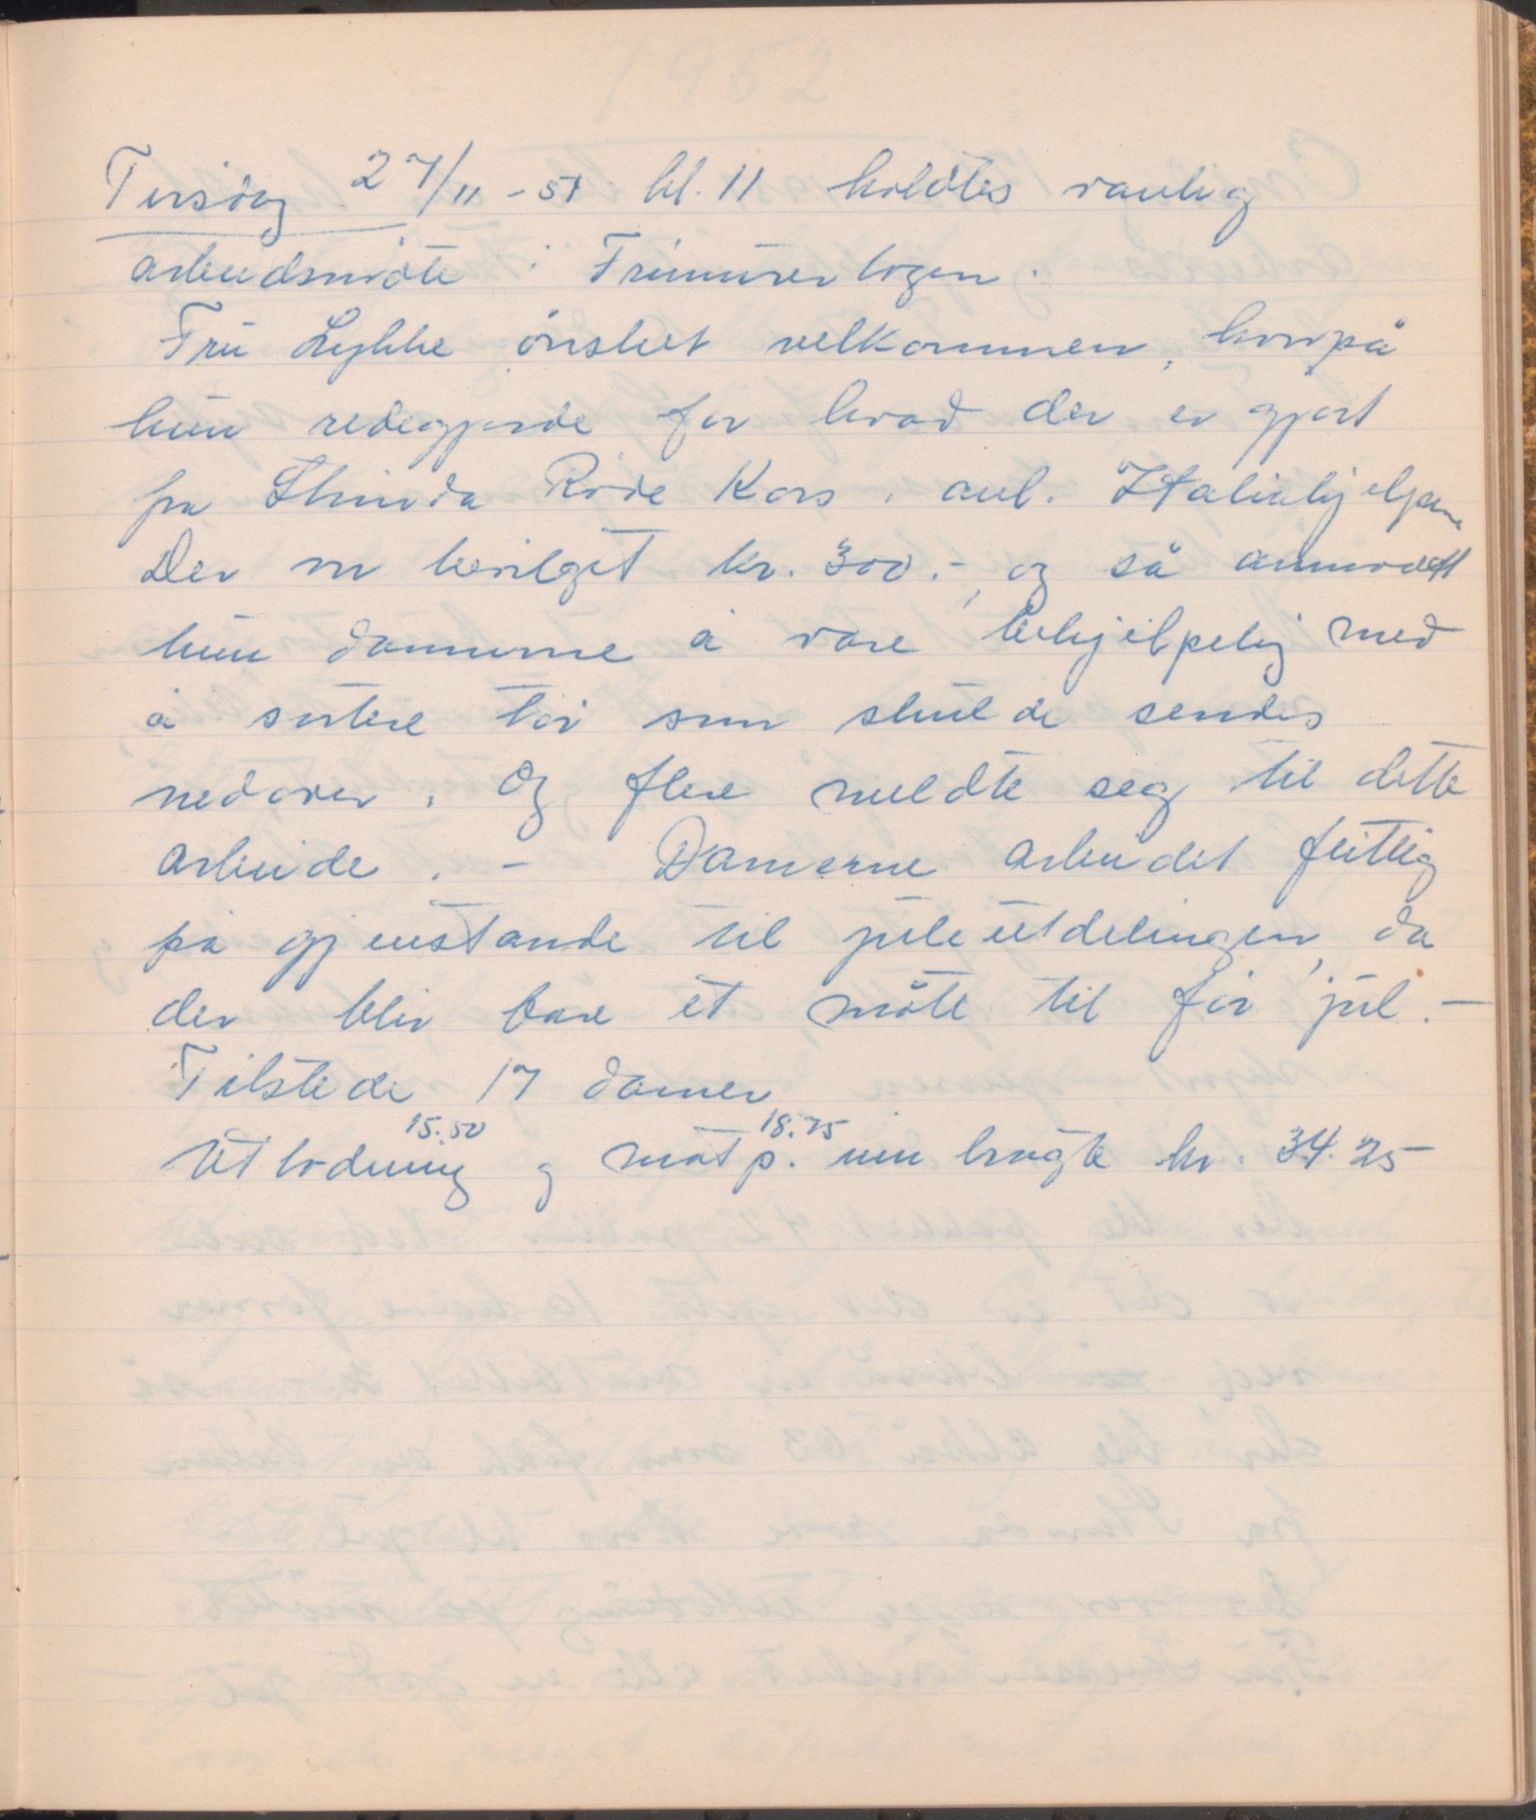 Tirsdag 27/11-51 kl. 11 holdtes vanlig
arbeidsmöte i Frimurerlogen.
Fru Lykke önsket velkommen, hvorpå
hun redegjorde for hvad der er gjort
fra Strinda Röde Kors, anl. Italiahjelpen
Der var bevilget kr. 300.-, og så anmodet
hun damerne å være behjelpelig med
å sortere töi som skulde sendes
nedover. Og flere meldte seg til dette
arbeide. - Damerne arbeidet flittig
på gjenstande til juleutdelingen, da
der blir bare et möte til för jul. -
Tilstede 17 damer
15.50 18.75
Utlodning og möt p. inn bragte kr. 34.25